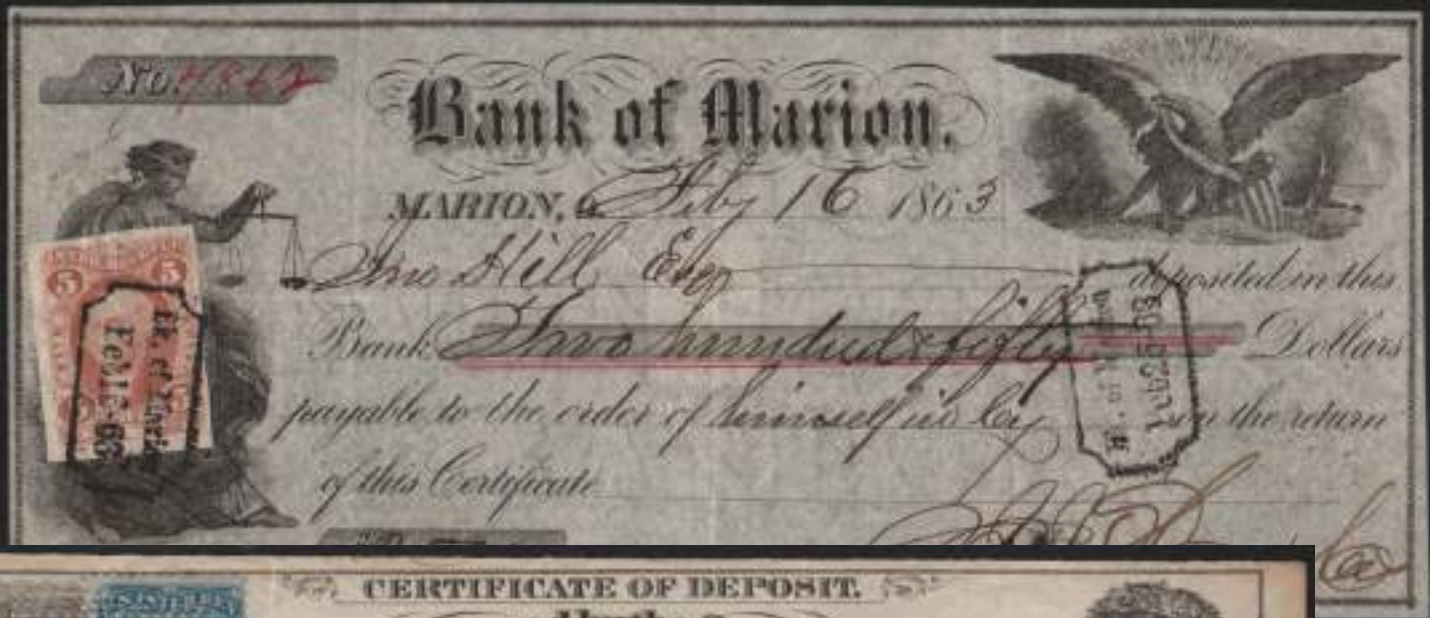 No. 4862
Bank of Marion.
MARION, O. Feby 16 1863
Jno Hill Esq deposited in this
Bank Two hundred & fifty Dollars
payable to the order of himself in Cy on the return
of this Certificate
5 5
Bk. of Mario
Feb 16 63
CERTIFICATE OF DEPOSIT.